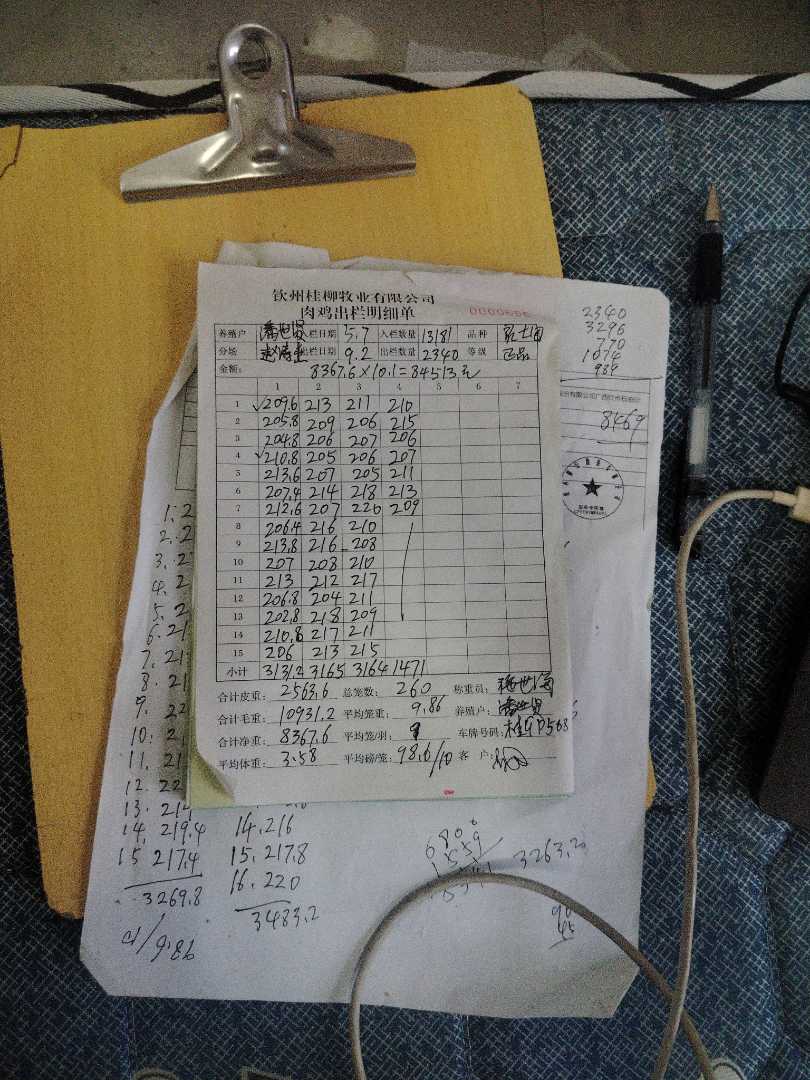 钦州桂柳牧业有限公司
肉鸡出栏明细单
养殖户 潘世贤 入栏日期 5.7 入栏数量 13181 品种
分场 出栏日期 9.2 出栏数量 2340 等级 正品
金额: 8367.6×10.1=84513元
1 2 3 4 5 6 7
1 √209.6 213 211 210
2 205.8 209 206 215
3 204.8 206 207 206
4 √210.8 205 206 207
5 213.6 207 205 211
6 207.4 214 218 213
7 212.6 207 220 209
8 206.4 216 210
9 213.8 216 208
10 207 208 210
11 213 212 217
12 206.8 204 211
13 202.8 218 209
14 210.8 217 211
15 206 213 215
小计 3131.2 3165 3164 1471
合计皮重: 2563.6 总笼数: 260 称重员:
合计毛重: 10931.2 平均笼重: 9.86 养殖户: 潘世贤
合计净重: 8367.6 平均笼/羽: 9 车牌号码:
平均体重: 3.58 平均磅/笼: 98.6/10 客户:
2340
3296
770
1074
989
8469
1. 2
2. 2
3. 2
4. 2
5. 2
6. 21
7. 21
8. 21
9. 22
10. 21
11. 21
12. 22
13. 214
14. 219.4
15 217.4
3269.8
9.86
14. 216
15. 217.8
16. 220
3483.2
3263.2